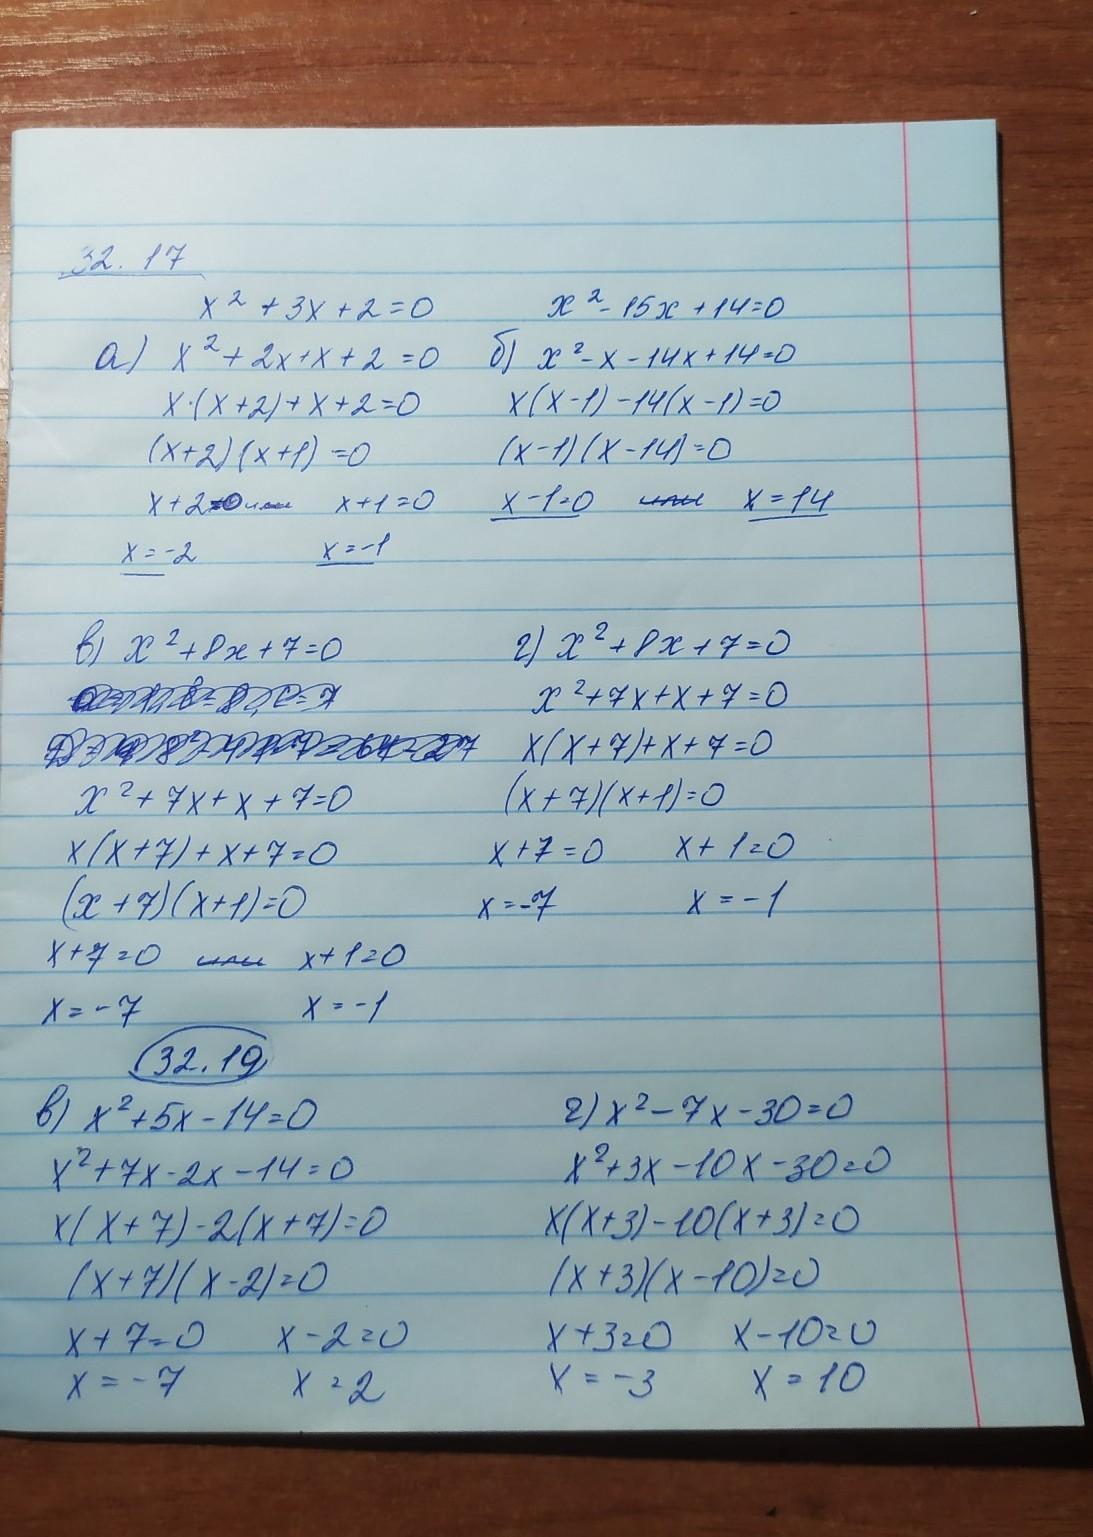 32.17
x² + 3x + 2 = 0 x² - 15x + 14 = 0
а) x² + 2x + x + 2 = 0 б) x² - x - 14x + 14 = 0
x·(x+2) + x + 2 = 0 x(x-1) - 14(x-1) = 0
(x+2)(x+1) = 0 (x-1)(x-14) = 0
x+2=0 или x+1=0 x-1=0 или x=14
x = -2 x = -1
в) x² + 8x + 7 = 0 г) x² + 8x + 7 = 0
x² + 7x + x + 7 = 0
x(x+7) + x + 7 = 0
x² + 7x + x + 7 = 0 (x+7)(x+1) = 0
x(x+7) + x + 7 = 0 x+7=0 x+1=0
(x+7)(x+1) = 0 x = -7 x = -1
x+7=0 или x+1=0
x = -7 x = -1
32.19
в) x² + 5x - 14 = 0 г) x² - 7x - 30 = 0
x² + 7x - 2x - 14 = 0 x² + 3x - 10x - 30 = 0
x(x+7) - 2(x+7) = 0 x(x+3) - 10(x+3) = 0
(x+7)(x-2) = 0 (x+3)(x-10) = 0
x+7=0 x-2=0 x+3=0 x-10=0
x = -7 x = 2 x = -3 x = 10